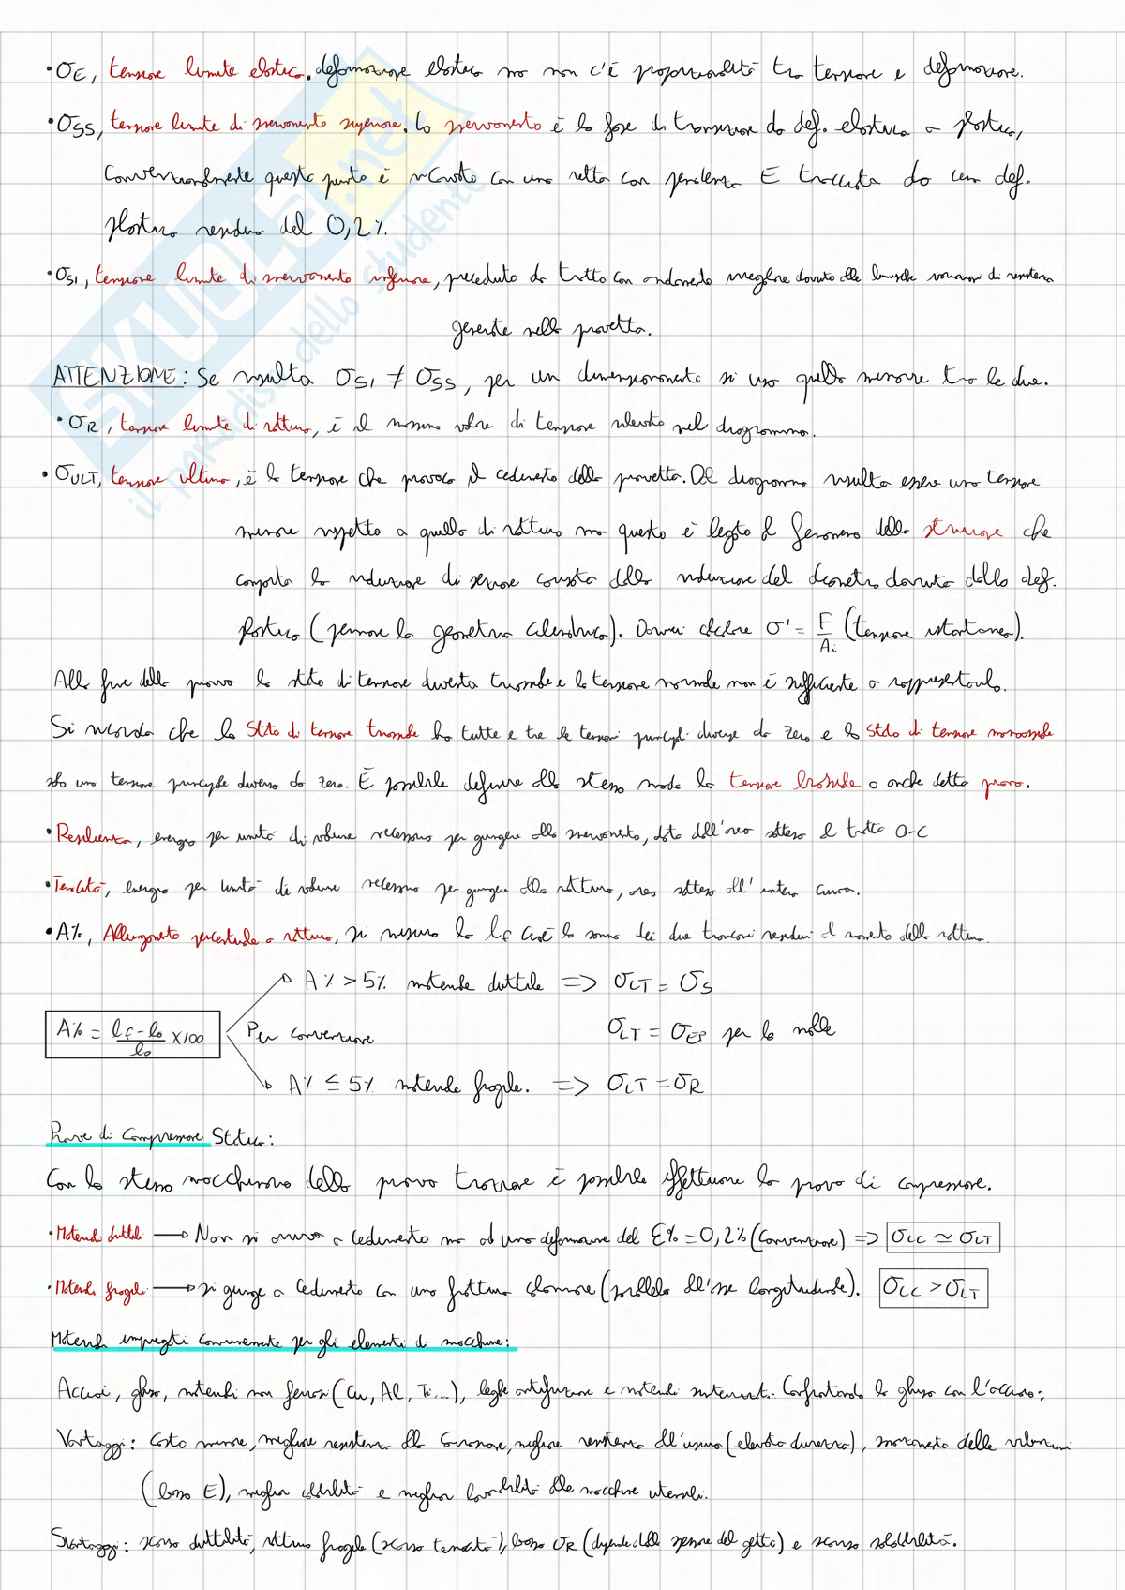 • σE, tensione limite elastica, deformazione elastica ma non c'è proporzionalità tra tensione e deformazione.
• σSS, tensione limite di snervamento superiore. Lo snervamento è la fase di transizione da def. elastica a plastica,
Convenzionalmente questo punto è ricavato con una retta con pendenza E tracciata da una def.
plastica residua del 0,2%.
• σSI, tensione limite di snervamento inferiore, preceduto da tratto con andamento irregolare dovuto alle brusche variazioni di resistenza
generate nella provetta.
ATTENZIONE: Se risulta σSI ≠ σSS, per un dimensionamento si usa quella minore tra le due.
• σR, tensione limite di rottura, è il massimo valore di tensione rilevato nel diagramma.
• σULT, tensione ultima, è la tensione che provoca il cedimento della provetta. Dal diagramma risulta essere una tensione
minore rispetto a quella di rottura ma questo è legato al fenomeno della strizione che
comporta la riduzione di sezione causata dalla riduzione del diametro dovuta dalla def.
plastica (permane la geometria cilindrica). Dovrei calcolare σ' = F/Ai (tensione istantanea).
Alla fine della prova lo stato di tensione diventa triassiale e la tensione normale non è sufficiente a rappresentarlo.
Si ricorda che lo stato di tensione triassiale ha tutte e tre le tensioni principali diverse da zero e lo stato di tensione monoassiale
solo una tensione principale diversa da zero. È possibile definire allo stesso modo la tensione biassiale o anche detta piana.
• Resilienza, energia per unità di volume necessaria per giungere allo snervamento, data dall'area sottesa al tratto O-C
• Tenacità, energia per unità di volume necessaria per giungere alla rottura, area sottesa all'intera curva.
• A%, Allungamento percentuale a rottura, si misura la lf cioè la somma dei due tronconi residui al momento della rottura.
A% > 5% materiale duttile => σLT = σS
A% = lf - l0 / l0 x100 Per convenzione σLT = σEP per le molle
A% ≤ 5% materiale fragile. => σLT = σR
Prove di Compressione Statica:
Con lo stesso macchinario della prova trazione è possibile effettuare la prova di compressione.
• Materiali duttili → Non si arriva a cedimento ma ad una deformazione del ε% = 0,2% (Convenzione) => σLC ≃ σLT
• Materiali fragili → si giunge a Cedimento con una frattura colonnare (parallela all'asse longitudinale). σLC > σLT
Materiali impiegati comunemente per gli elementi di macchine:
Acciai, ghisa, materiali non ferrosi (Cu, Al, Ti...), leghe antifrizione e materiali sinterizzati. Confrontando la ghisa con l'acciaio:
Vantaggi: Costo minore, migliore resistenza alla Corrosione, migliore resistenza all'usura (elevata durezza), smorzamento delle vibrazioni
(basso E), miglior colabilità e miglior lavorabilità alle macchine utensili.
Svantaggi: scarsa duttilità, rottura fragile (scarsa tenacità), bassa σR (dipende dallo spessore del getto) e scarsa saldabilità.